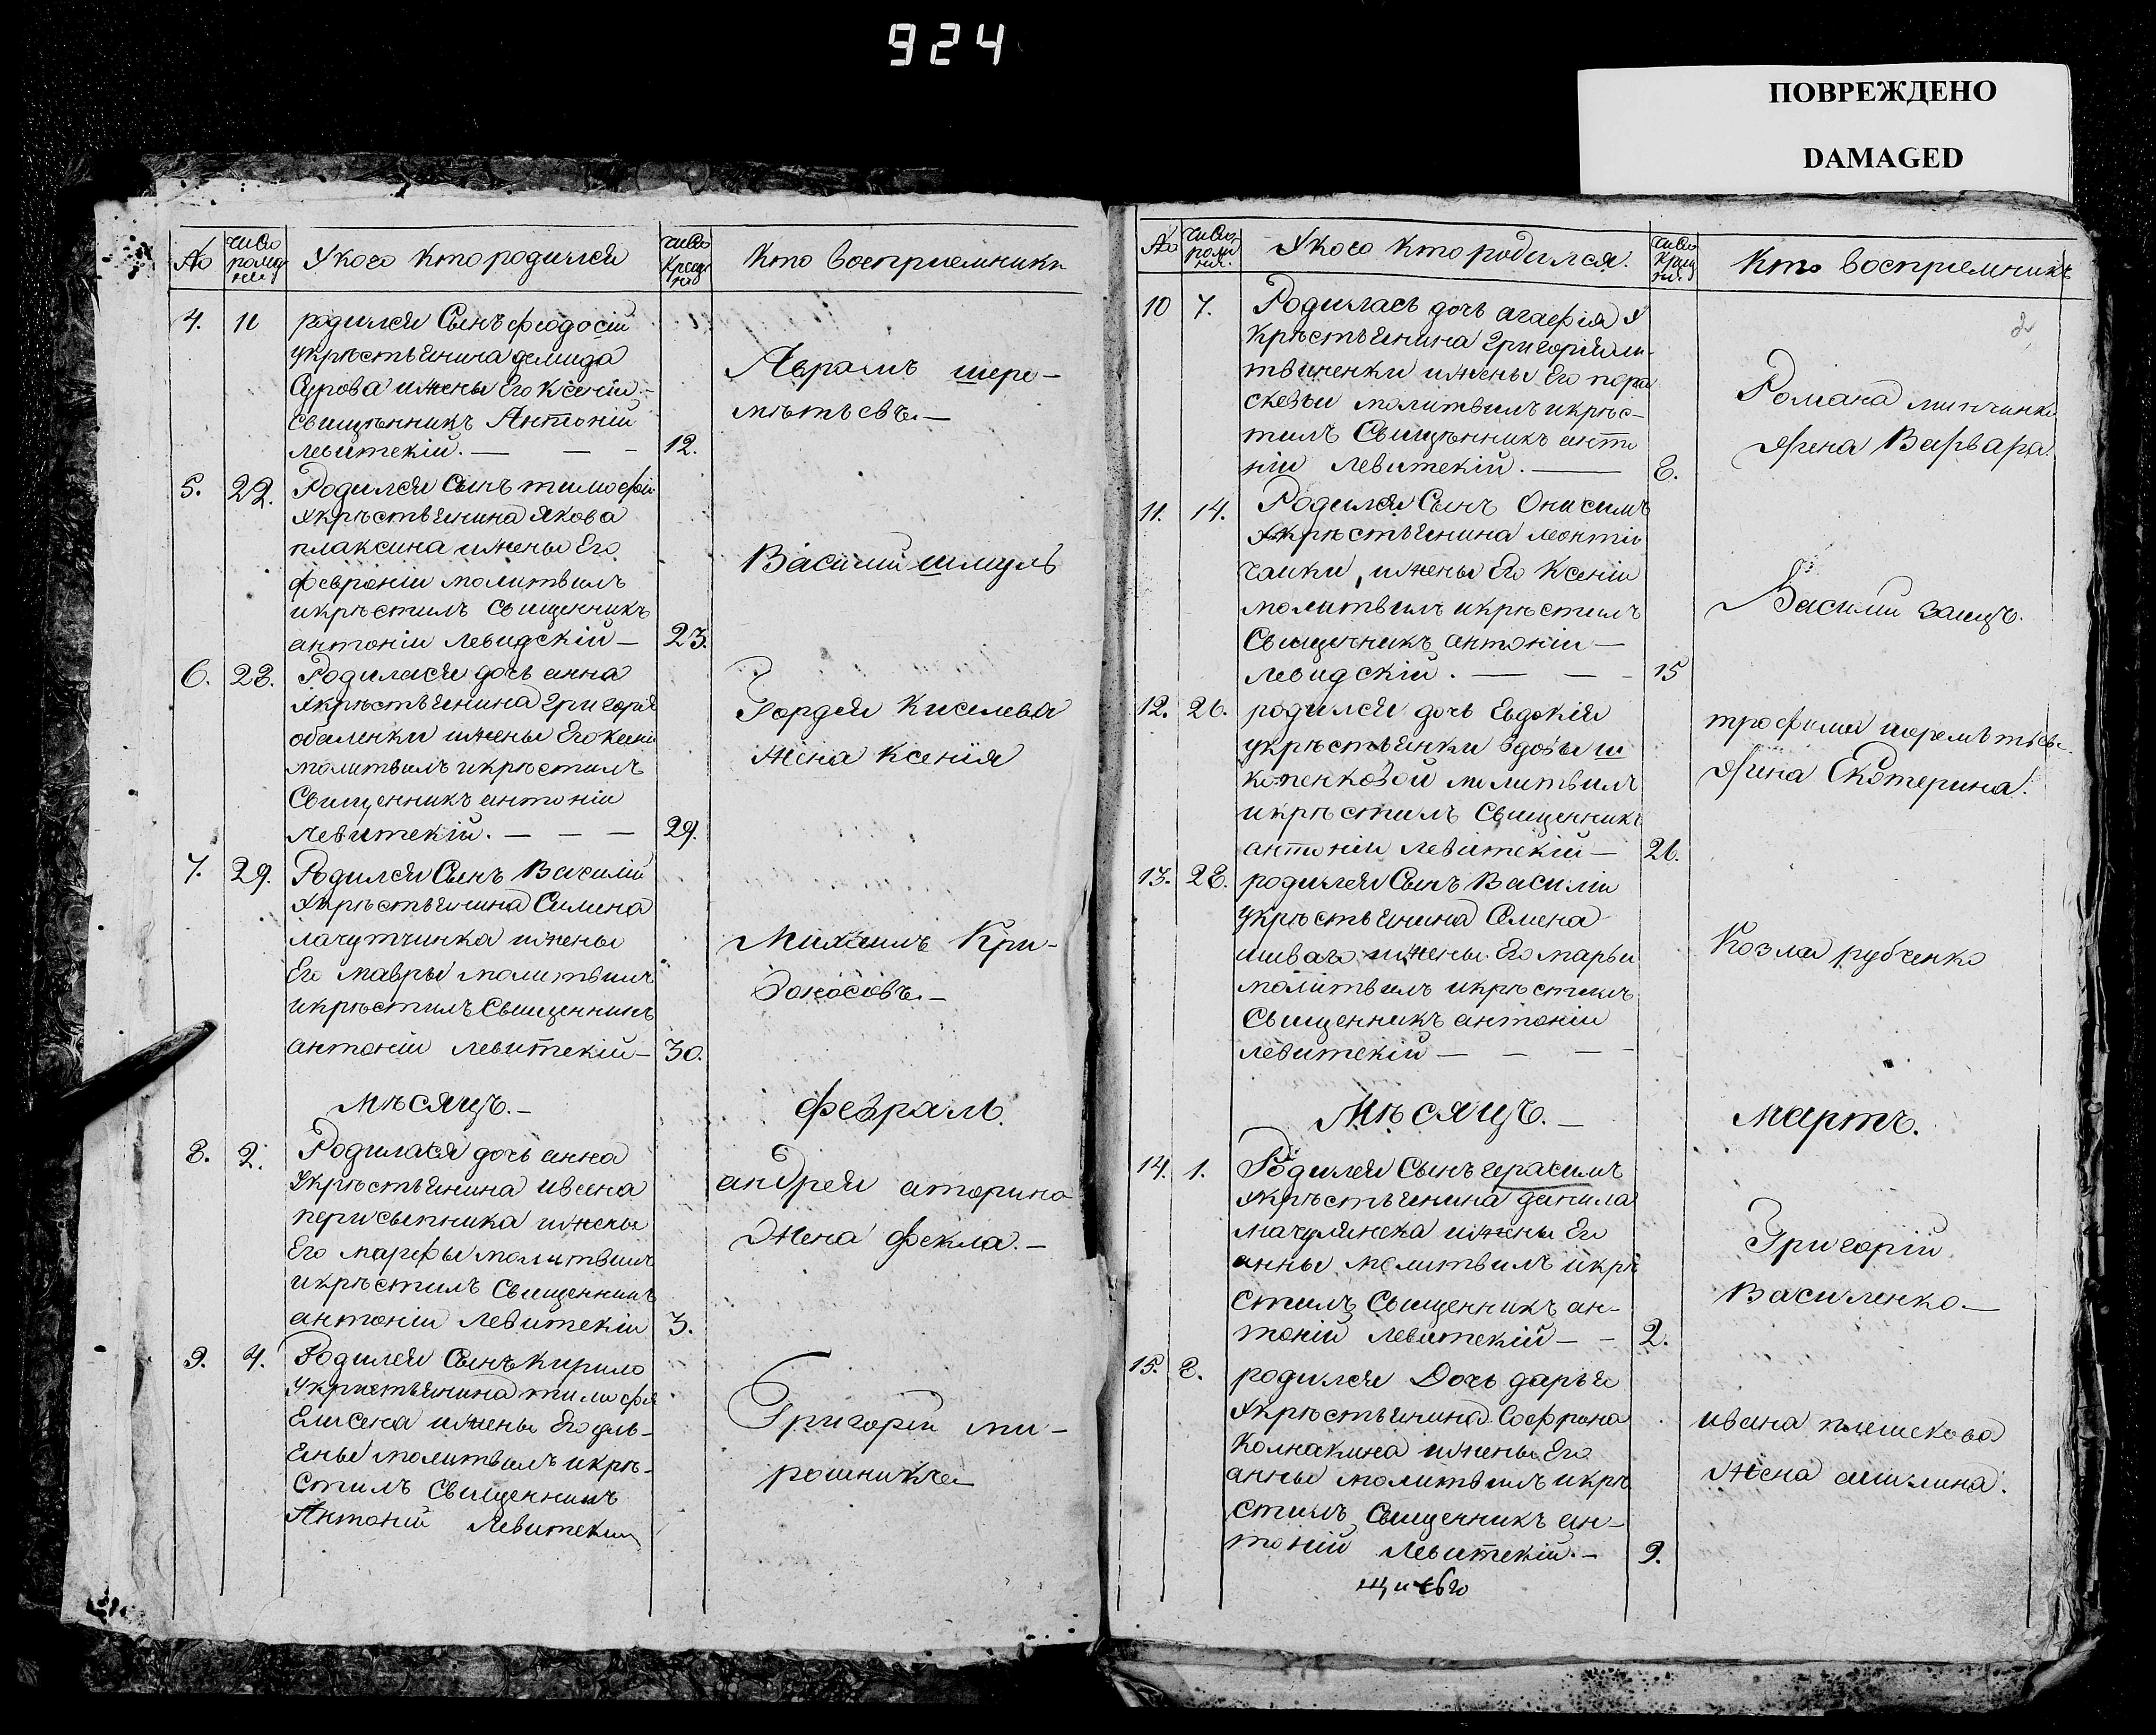 924
ПОВРЕЖДЕНО
DAMAGED
№ число рожде ния Укого кто родился число креще ния Кто восприемники
4. 11 родился Сынъ феодосій
укрѣстьянина демида
Сурова ижены Его Ксеніи
Священникъ Антоній
Левитскій. — — — 12.
Аврамъ шере-
мѣтьевъ. —
5. 22. Родился Сынъ тимофѣй
Укрѣстьянина якова
плаксина ижены Его
февроніи молитвилъ
икрѣстилъ священникъ
антоніи Левидскій — 23.
Василий шмуль
6. 28. Родилася дочь анна
Укрѣстьянина григорія
ижены Его ксени
молитвилъ икрѣстилъ
Священникъ антоніи
Левитскій. — — — 29.
Гордея Киселева
жена Ксения
7. 29. Родился Сынъ Василій
Укрѣстьянина Симена
ижены
Его мавры молитвилъ
икрѣстилъ Священникъ
антоніи Левитскій — 30.
Михаилъ Кри-
доносовъ. —
мѣсяцъ. — февраль.
8. 2. Родилася дочь анна
Укрѣстьянина ивана
пересыпника ижены
Его марфы молитвилъ
икрѣстилъ Священникъ
антоніи Левитскіи 3.
андрея
жена фекла. —
9. 4. Родился Сынъ Кирило
Укрѣстьянина тимофѣя
Елисена ижены Его уль-
яны молитвилъ икрѣ-
стилъ Священникъ
Антоній Левитскій
Григорій ми-
рошниченко
№ число рожде ния. Укого кто родился. число креще ния Кто восприемникъ
10 7. Родилась дочь агафія У
Крѣстьянина григорія ли-
твиненки ижены Его пара
скевьи молитвилъ икрѣс-
тилъ Священникъ анто
ніи Левитскій. — 8.
Романа
жена Варвара
11. 14. Родился Сынъ Онисимъ
Укрѣстьянина леонтія
чайки, ижены Его Ксеніи
молитвилъ икрѣстилъ
Священникъ антоніи —
Левидскій. — — — 15
Василій заицъ.
12. 26. родился дочь Евдокія
укрѣстьянки вдовы ш
копенковой молитвилъ
икрѣстилъ Священникъ
антоніи Левитскій — 26.
трофима шереметьева
жена Екатерина.
13. 28. родился Сынъ Василіи
Укрѣстьянина Семена
ижены Его марьи
молитвилъ икрѣстилъ
Священникъ антоніи
Левитскій — — —
Козма рубченко
Мѣсяцъ. — мартъ.
14. 1. Родился Сынъ герасимъ
Укрѣстьянина данила
ижены Его
анны молитвилъ икрѣ
стилъ Священникъ ан-
тоній Левитскій — — 2.
Григорій
Василенко —
15. 8. родился Дочь дарья
Укрѣстьянина Софрона
Колпакина ижены Его
анны молитвилъ икрѣ
стилъ, Священникъ ан-
тоній Левитскій. — 9.
ивана плешкова
жена акилина.